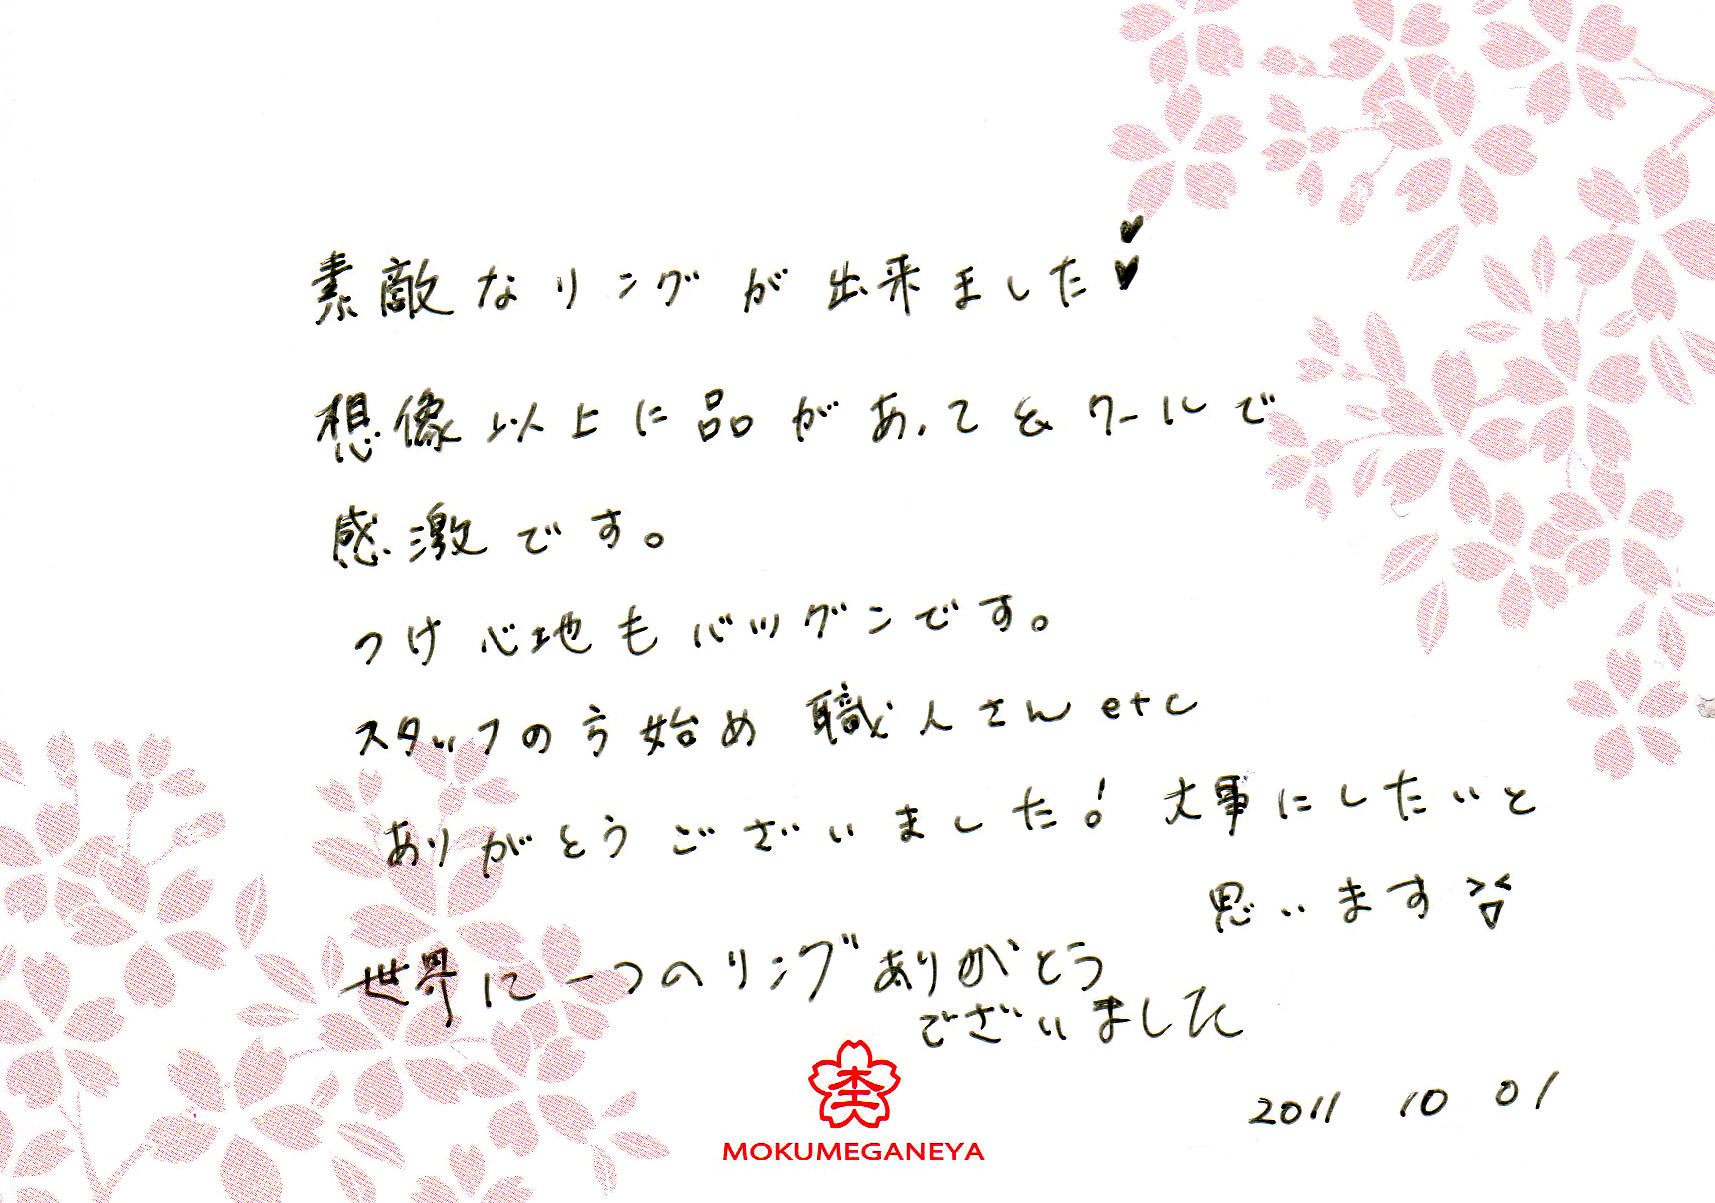 素敵なリングが出来ました♥
想像以上に品があってもクールで
感激です。
つけ心地もバツグンです。
スタッフの方始め職人さんetc
ありがとうございました! 大事にしたいと
思います
世界に一つのリングありがとう
でございました
2011 10 01
MOKUMEGANEYA